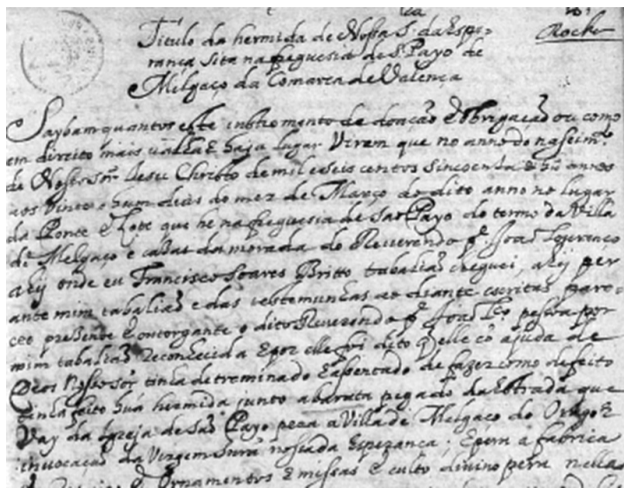 Titulo da hermida de Nossa Sª da Espe-
ranca sita na freguesia de S. Payo de
Melgaço da Comarca de Valença
Rocha
Saybam quantos este instromento de doação e obrigação ou como
em direito mais valha e haja lugar virem que no anno do nascim.to
de Nosso Sñor Jesu Christo de mil e seis centos sincoenta e hũ annos
aos vinte e hum dias do mez de Março do dito anno no lugar
da Ponte que he na freguesia de Sao Payo do termo da Villa
de Melgaço e casas da morada do Reverendo p.e Joaõ Lourenco
ahy onde eu Francisco Soares Britto tabaliaõ cheguei, ahy per
ante mim tabaliaõ e das testemunhas ao diante escritas pare-
ceo prezente e outorgante o dito Reverendo p.e Joaõ Lço pessoa por
mim tabaliaõ reconhecida e por elle foi dito q elle cõ ajuda de
Deos Nosso Sor tinha detreminado e assentado de fazer como defeito
tinha feito hũa hermida junto pegado da Estrada que
vay da Igreja de Saõ Payo pera a Villa de Melgaço do
invocacaõ da Virgem Sñra nossa da Esperanca; e pera a fabrica
ornamentos e missas e culto divino pera nella